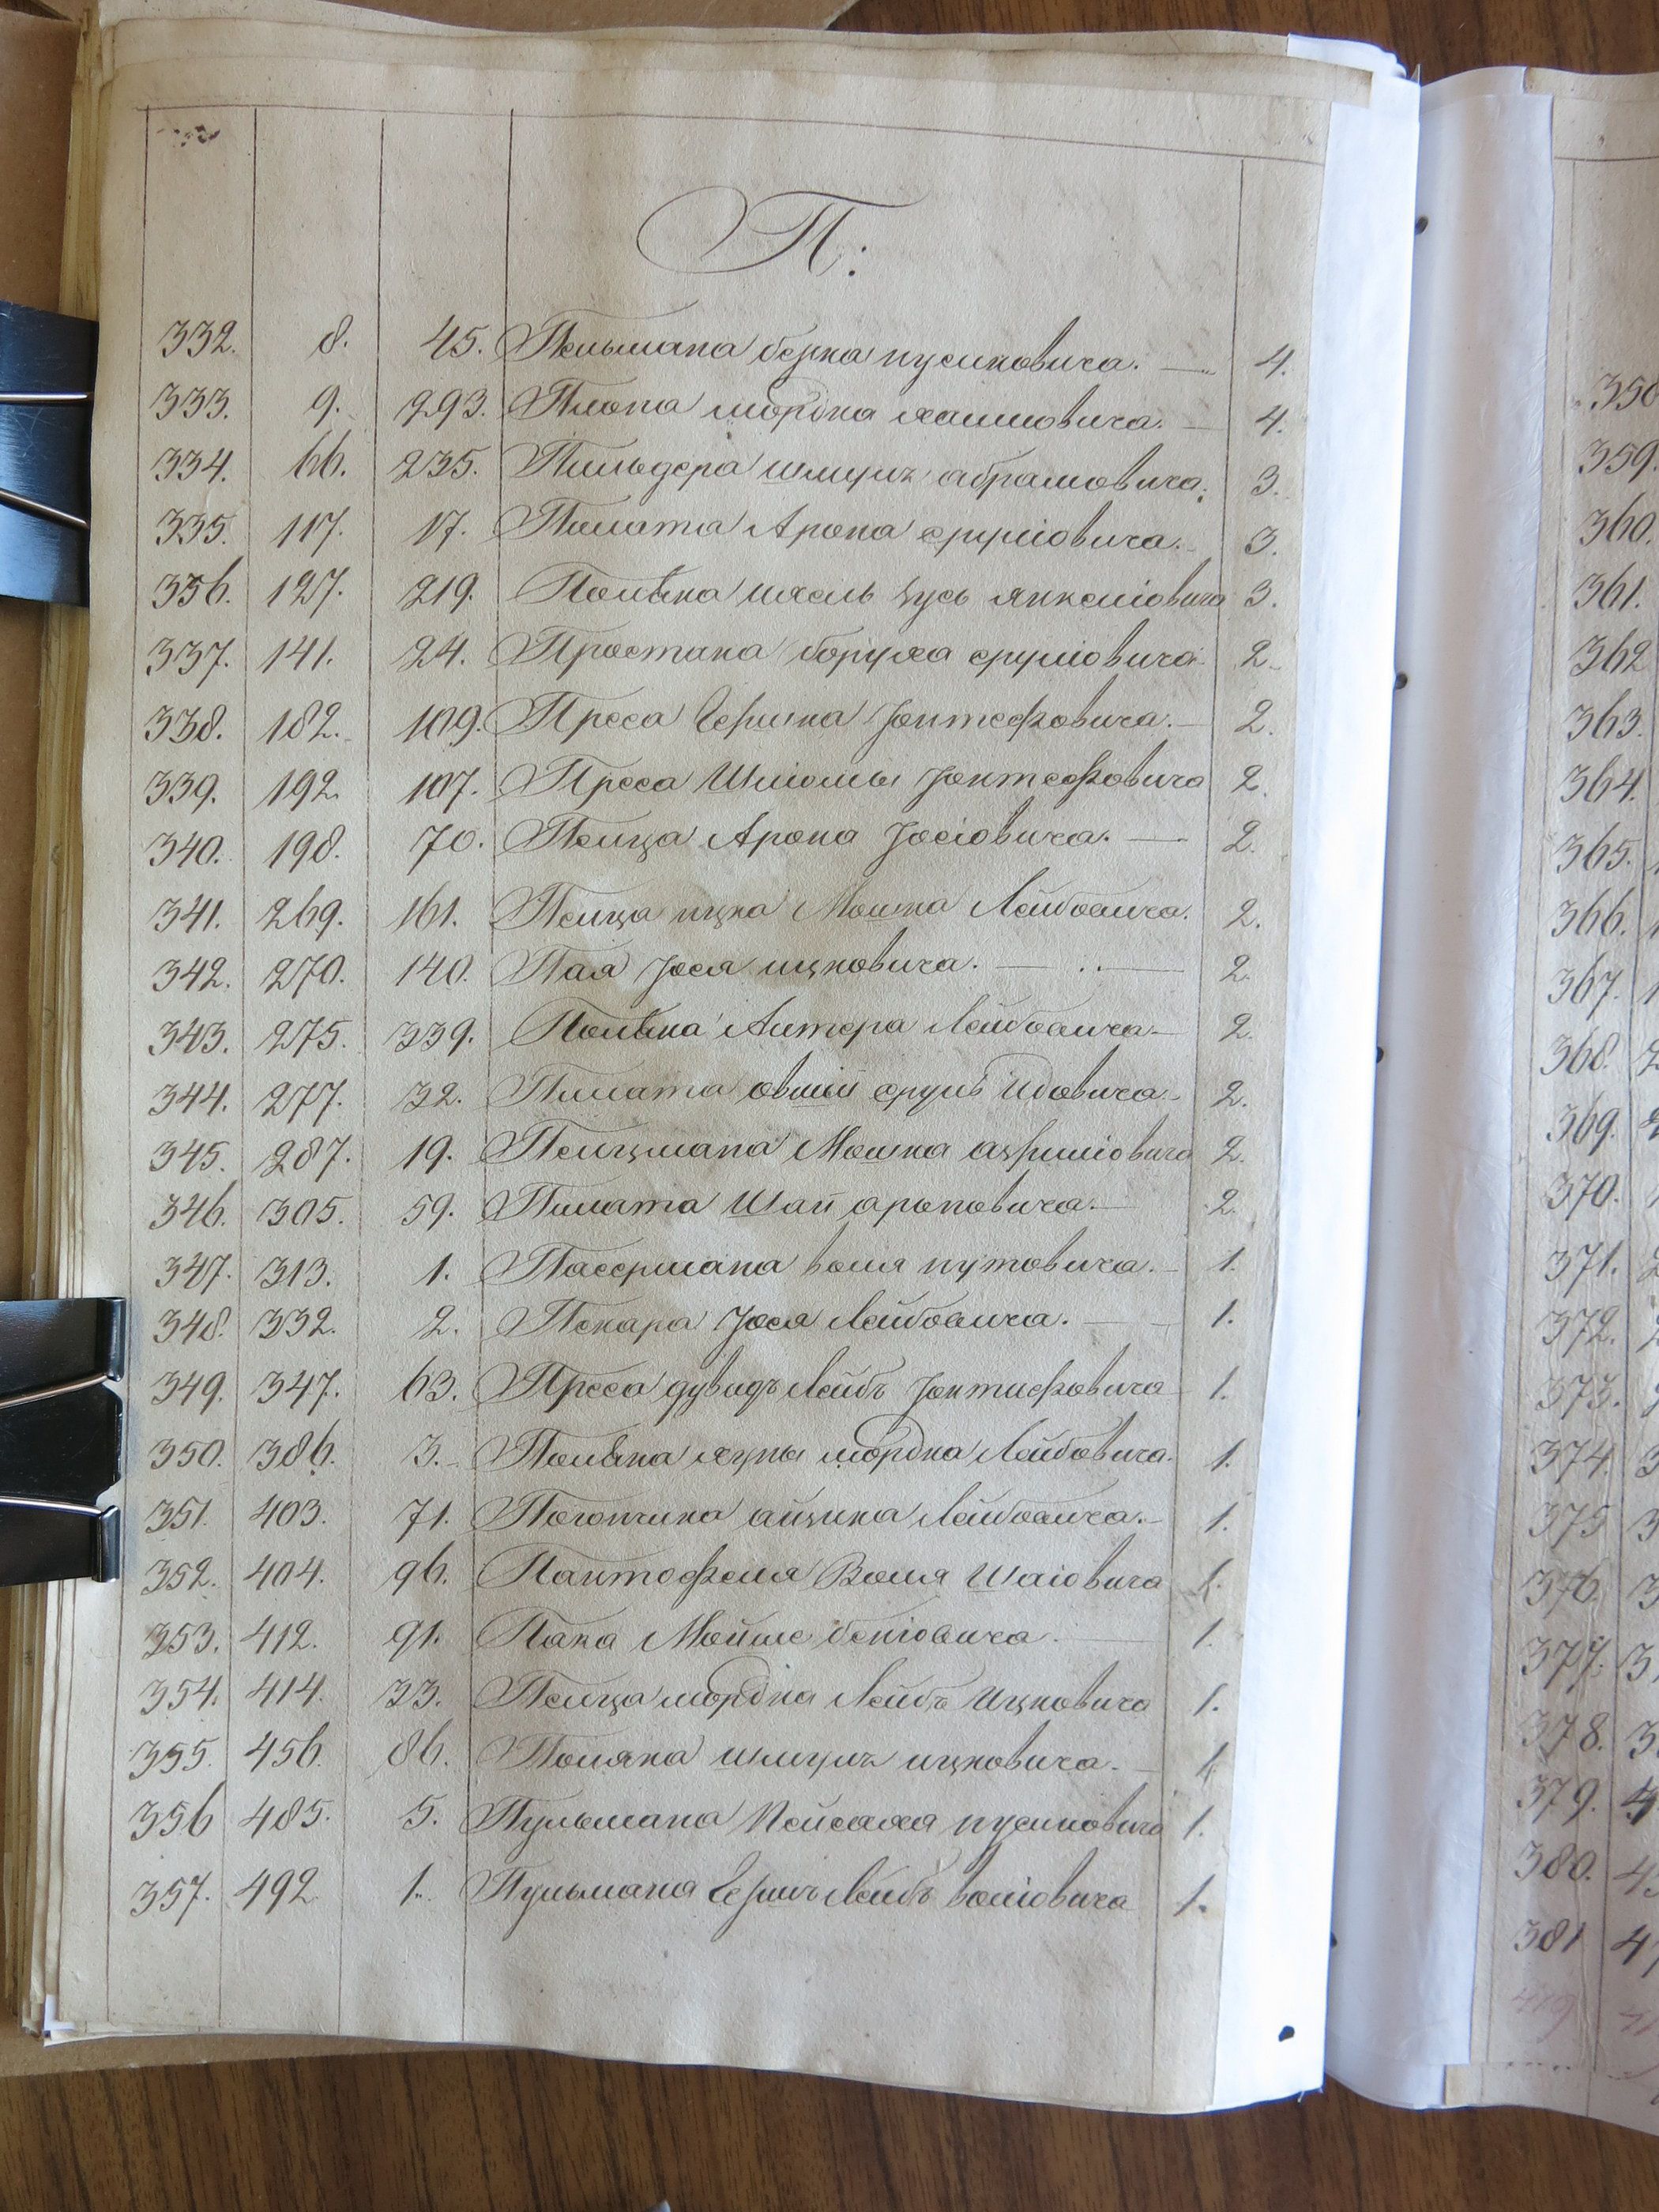 П:
332. 8. 45. Пельмана берка нусиновича. — 4.
333. 9. 293. Плота мордка хаимовича. — 4.
334. 66. 235. Пильдера шмуль абрамовича. 3.
335. 117. 17. Пилата Арона сруліовича. 3.
336. 127. 219. Поляка іосель зусь янкеліовича 3.
337. 141. 24. Простака боруха сруліовича 2.
338. 182. 109. Преса Гершка Іонтефовича. — 2.
339. 192. 107. Преса Шліомы Іонтефовича 2.
340. 198. 70. Пейца Арона Іосіовича. — 2.
341. 269. 161. Пейца ицка Мошка Лейбовича. 2.
342. 270. 140. Пая Іося ицковича. — 2.
343. 275. 339. Поляка Антера Лейбовича — 2.
344. 277. 32. Пилата овшій сруль Идовича — 2.
345. 287. 19. Пейцмана Мошка азриліовича 2.
346. 305. 59. Пилата Шаи ароновича. — 2.
347. 313. 1. Пассермана воля нутовича. — 1.
348. 332. 2. Пекара Іося Лейбовича. — 1.
349. 347. 63. Преса дувидъ Лейбъ Іонтифовича 1.
350. 386. 3. Поляка хуны мордка Лейбовича. 1.
351. 403. 71. Погончика айзика Лейбовича. — 1.
352. 404. 96. Пантофеля Воля Шаіовича 1.
353. 412. 91. Пака Мойше беніовича. — 1.
354. 414. 33. Пейца мордка Лейбъ Ицковича 1.
355. 456. 86. Поляка шмуль ицковича. — 1.
356. 485. 5. Пульмана Пейсаха нусиновича 1.
357. 492. 1. Пульмана Гершъ Лейбъ воліовича 1.
359.
360.
361.
362
363.
364.
365.
366.
367.
368.
369.
370.
371.
372.
373.
374.
375
376.
377.
378.
379.
380.
381